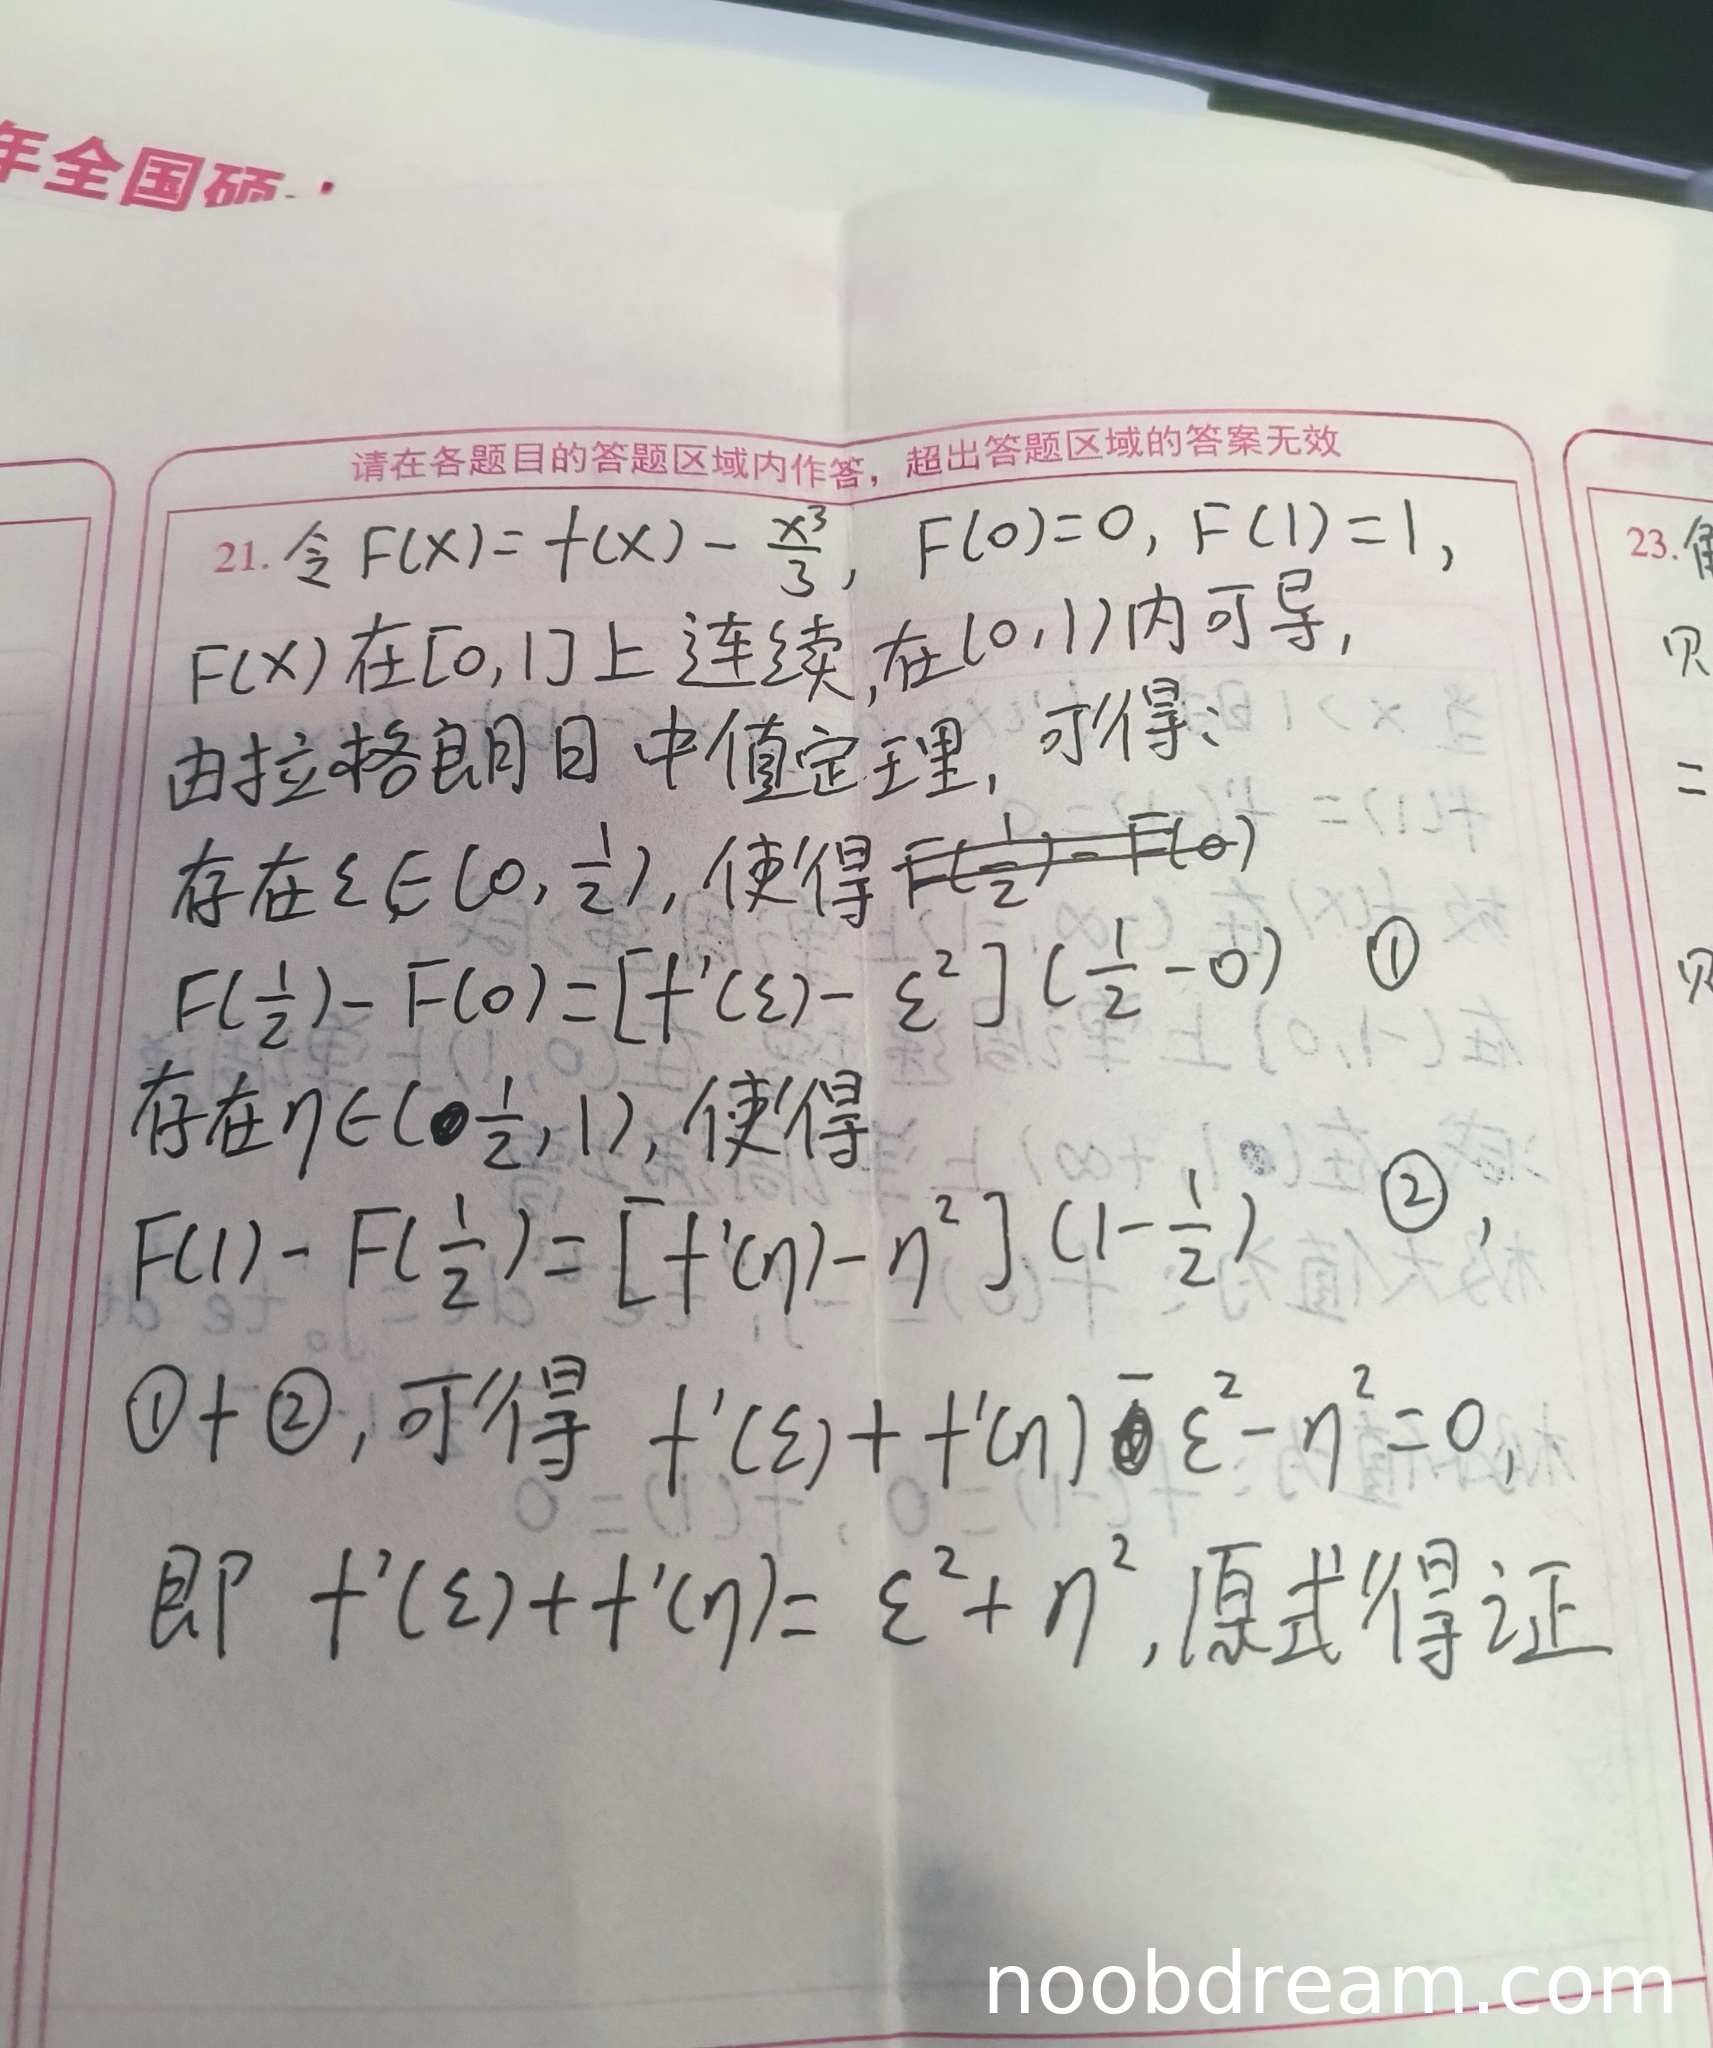 年全国硕
请在各题目的答题区域内作答，超出答题区域的答案无效
21. 令 F(x)=f(x)-x³/3, F(0)=0, F(1)=1,
F(x)在[0,1]上连续,在(0,1)内可导,
由拉格朗日中值定理,可得:
存在ξ∈(0,1/2),使得 F(1/2)-F(0)
F(1/2)-F(0)=[f'(ξ)-ξ²](1/2-0) ①
存在η∈(1/2,1),使得
F(1)-F(1/2)=[f'(η)-η²](1-1/2) ②,
①+②,可得 f'(ξ)+f'(η)-ξ²-η²=0,
即 f'(ξ)+f'(η)=ξ²+η²,原式得证
23.
则
=
则
noobdream.com